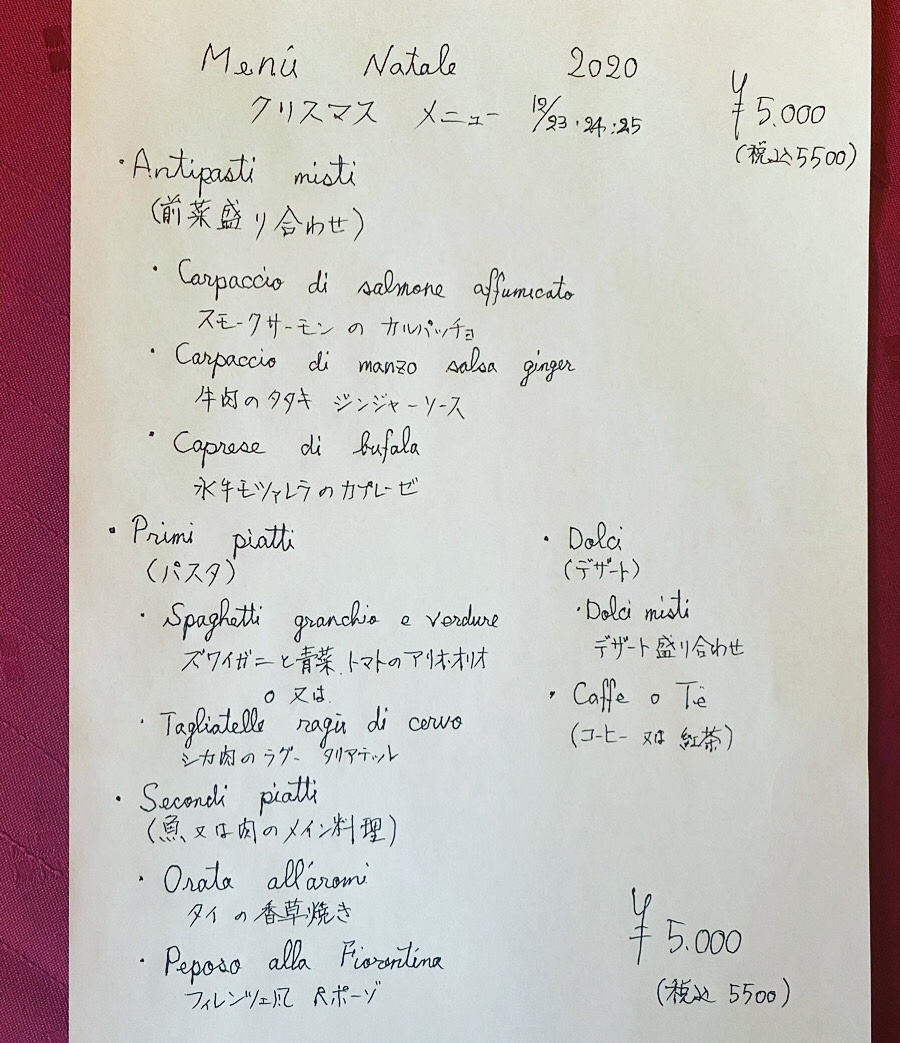 Menú Natale 2020
クリスマス メニュー 12/23・24・25
¥5.000
(税込5500)
・Antipasti misti
(前菜盛り合わせ)
・Carpaccio di salmone affumicato
スモークサーモンの カルパッチョ
・Carpaccio di manzo salsa ginger
牛肉のタタキ ジンジャーソース
・Caprese di bufala
水牛モツァレラのカプレーゼ
・Primi piatti
(パスタ)
・Spaghetti granchio e verdure
ズワイガニと青菜、トマトのアーリオ・オーリオ
o 又は
・Tagliatelle ragù di cervo
シカ肉のラグー タリアテッレ
・Secondi piatti
(魚又は肉のメイン料理)
・Orata all'aromi
タイの香草焼き
・Peposo alla Fiorentina
フィレンツェ風 ペポーゾ
・Dolci
(デザート)
・Dolci misti
デザート盛り合わせ
・Caffe o Tè
(コーヒー 又は 紅茶)
¥5.000
(税込 5500)